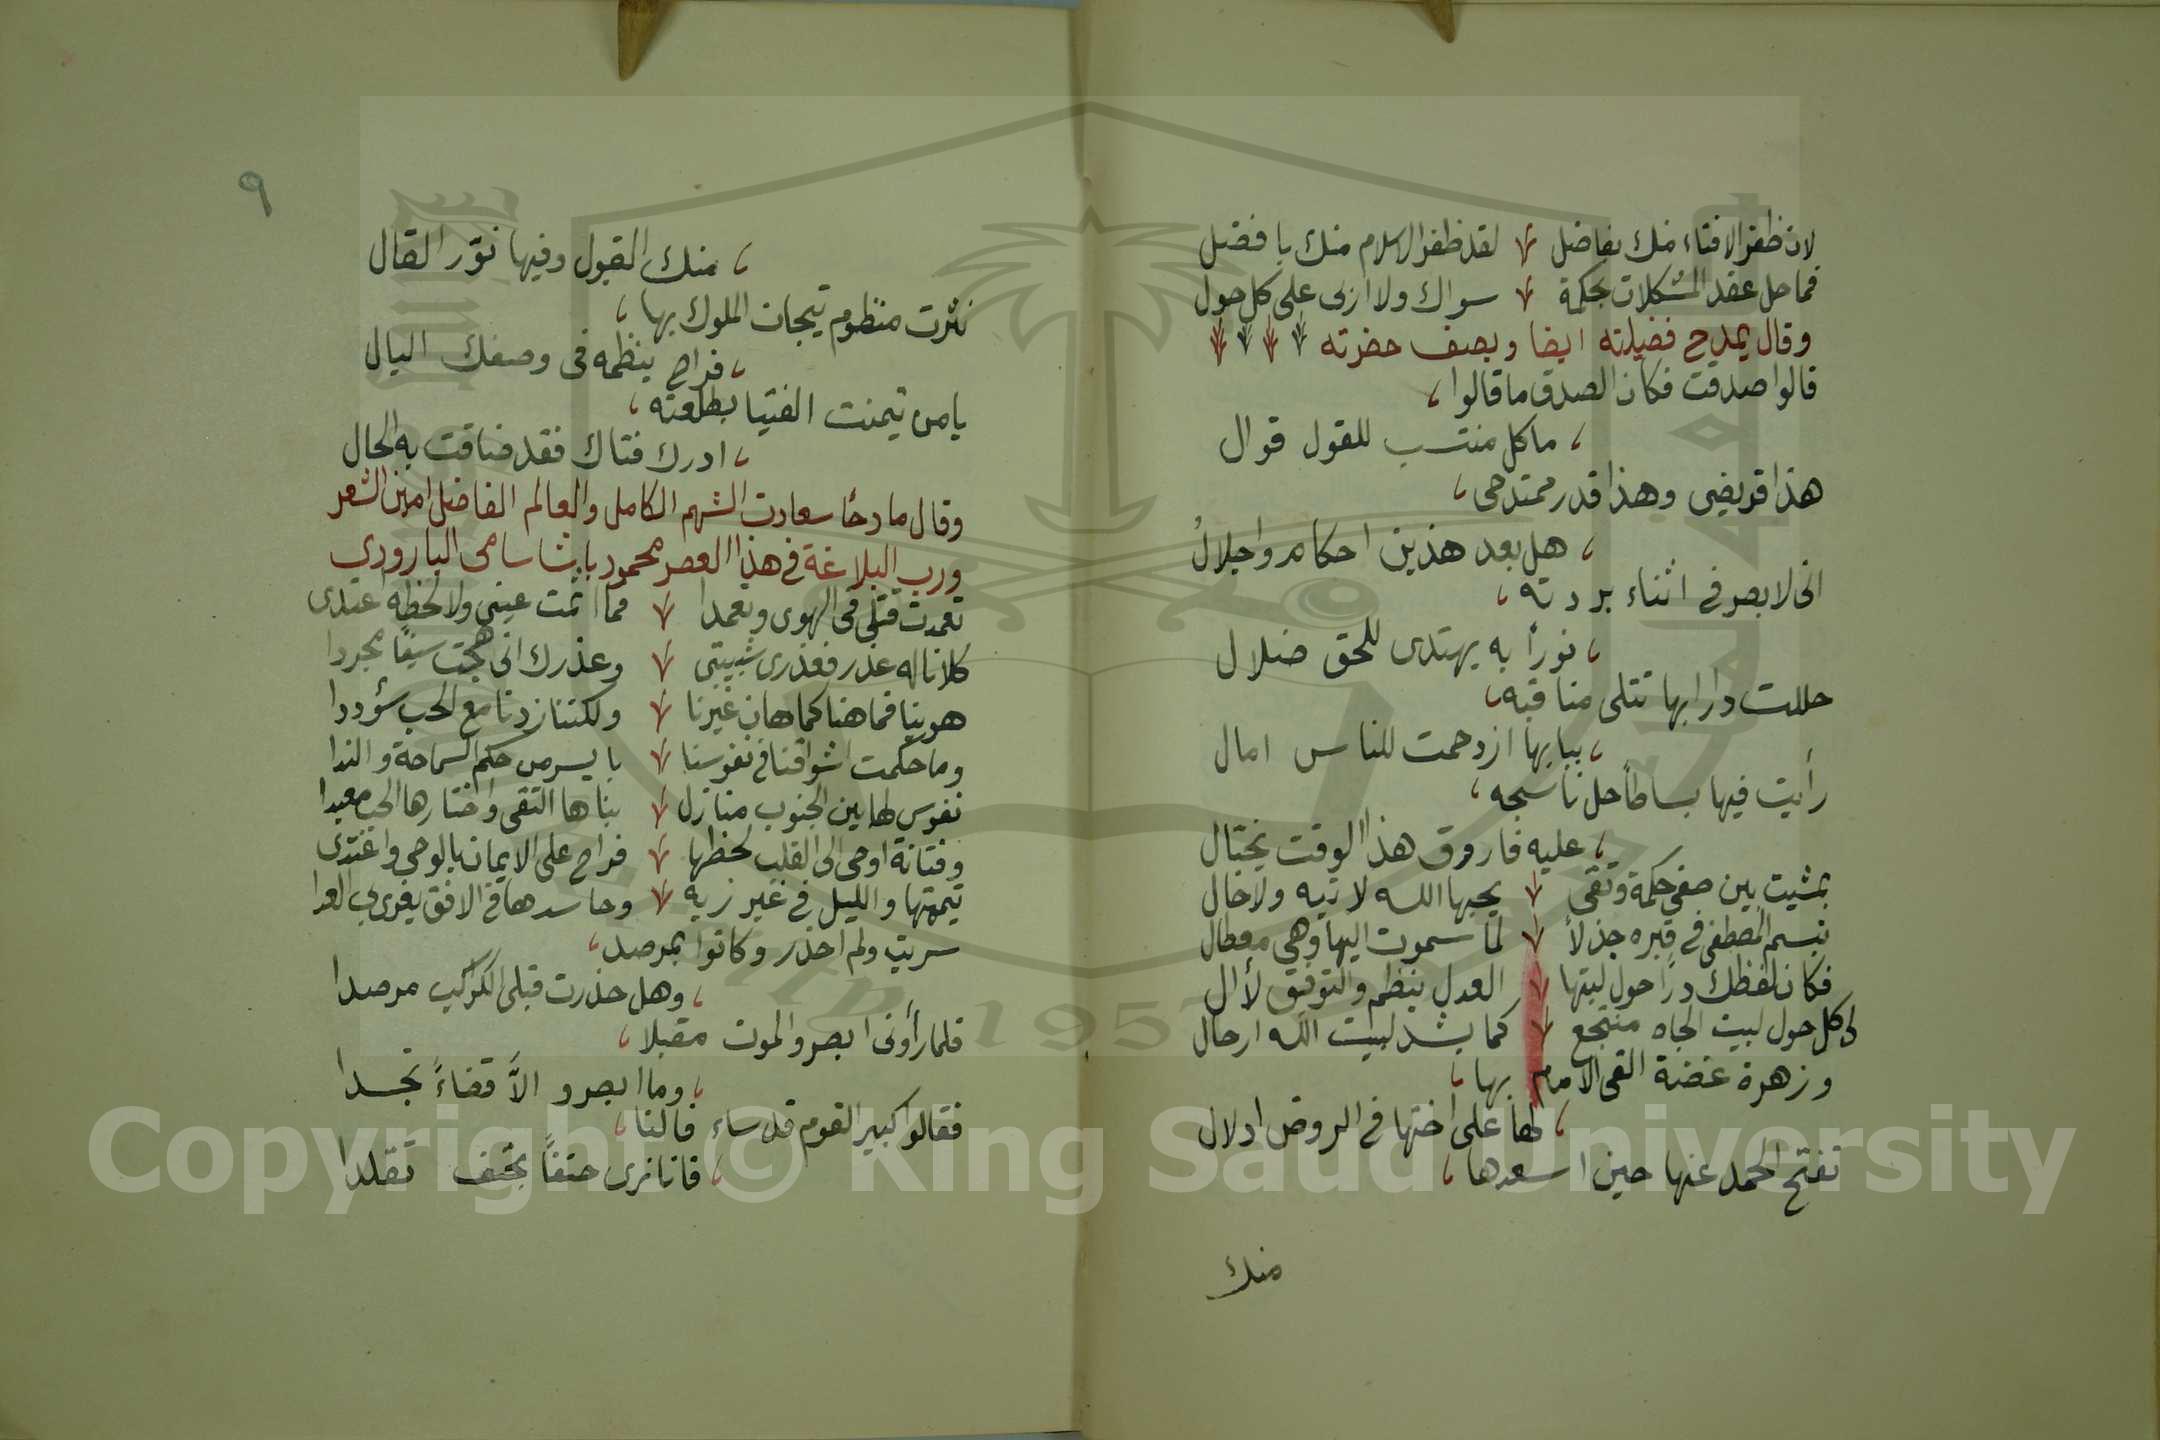 لان ظفر الافتاء منك بفاضل لقد ظفر الاسلام منك بافضل
فما حل عقد المشكلات بحكمة سواك ولا اربى على كل حول
وقال يمدح فضيلته ايضا ويصف حضرته
قالوا صدقت فكان الصدق ما قالوا
ما كل منتسب للقول قوال
هذا قريضى وهذا قدر ممتدحى
هل بعد هذين احكام واجلال
انى لابصر فى اثناء بردته
نورا به يهتدى للحق ضلال
حللت دارا بها تتلى مناقبه
ببابها ازدحمت للناس امال
رأيت فيها بساطا جل ناسجه
عليه فاروق هذا الوقت يختال
بمشيت بين صفى حكمة وتقى يحبها الله لا تيه ولا خال
تبسم المصطفى فى قبره جذلا لما سموت اليها وهى معطال
فكان لفظك درا حول لبتها العدل ينظم والتوفيق لأال
لى كل حول لبيت الجاه منتجع كما يشد لبيت الله ارحال
وزهرة غضة القى الامام بها
لها على اختها فى الروض ادلال
تفتح الحمد عنها حين اسعدها
منك
٩
منك القبول وفيها نوّر القال
نثرت منظوم تيجان الملوك بها
فراح ينظمه فى وصفك البال
يامن تيمنت الفتيا بطلعته
ادرك فتاك فقد ضاقت به الحال
وقال مادحا سعادت الشهم الكامل والعالم الفاضل امين الشعر
ورب البلاغة فى هذا العصر محمود باشا سامى البارودى
تعمدت قتلى فى الهوى وتعمدا فما اثمت عينى ولا لحظه اعتدى
كلانا له عذر فعذرى شبيبتى وعذرك انى هجت سيفا مجردا
هوينا فما هنا كما هان غيرنا ولكننا زدنا مع الحب سؤددا
وما حكمت اشواقنا فى نفوسنا بايسر من حكم السماحة والندا
نفوس لها بين الجنوب منازل بناها التقى واختارها الحب معبدا
وفتانة اوحى الى القلب لحظها فراح على الايمان بالوحى واغتدى
تيممتها والليل فى غير زيه وحاسدها فى الافق يغرى بى العدا
سريت ولم احذر وكانوا بمرصد
وهل حذرت قبلى الكواكب مرصدا
فلما رأونى ابصروا الموت مقبلا
وما ابصروا الاّ قضاءً تجسدا
فقالوا كبير القوم قد ساء فالنا
فانا نرى حتفاً بحتف تقلدا
Copyright © King Saud University
1957